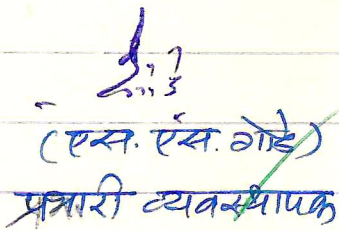 (एस. एस. गोडे)
प्रभारी व्यवस्थापक